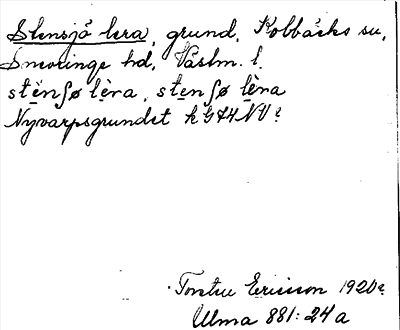 Stensjö lera, grund, Kolbäcks sn,
Snevringe hd, Västm. l.
stènʃø lèra, stenʃø lèra
Nyvarpsgrundet k G74 NV?
Torsten Ericsson 1920?
Ulma 881:24a